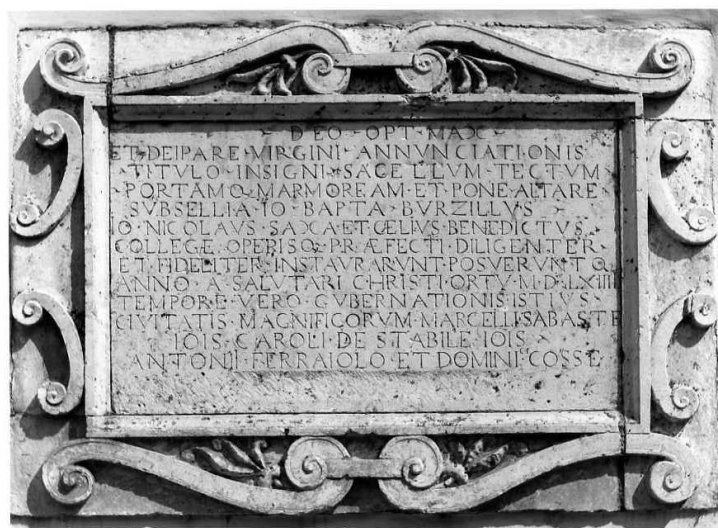 DEO · OPT · MAX
ET · DEIPARE · VIRGINI · ANNUNCIATIONIS
TITVLO · INSIGNI · SACELLVM · TECTVM
PORTAMQ · MARMOREAM · ET · PONE · ALTARE
SVBSELLIA · IO · BAPTA · BVRZILLVS
IO · NICOLAVS · SAXA · ET · CELIVS · BENEDICTVS
COLLEGE · OPERISQ · PRÆFECTI · DILIGENTER
ET · FIDELITER · INSTAVRARVNT · POSVERVNTQ
ANNO · A · SALVTARI · CHRISTI · ORTV · M · D · LXIIII
TEMPORE · VERO · GVBERNATIONIS · ISTIVS
CIVITATIS · MAGNIFICORVM · MARCELLI · SABASTE
IOIS · CAROLI · DE · STABILE · IOIS
ANTONII · FERRAIOLO · ET · DOMINI · COSSE